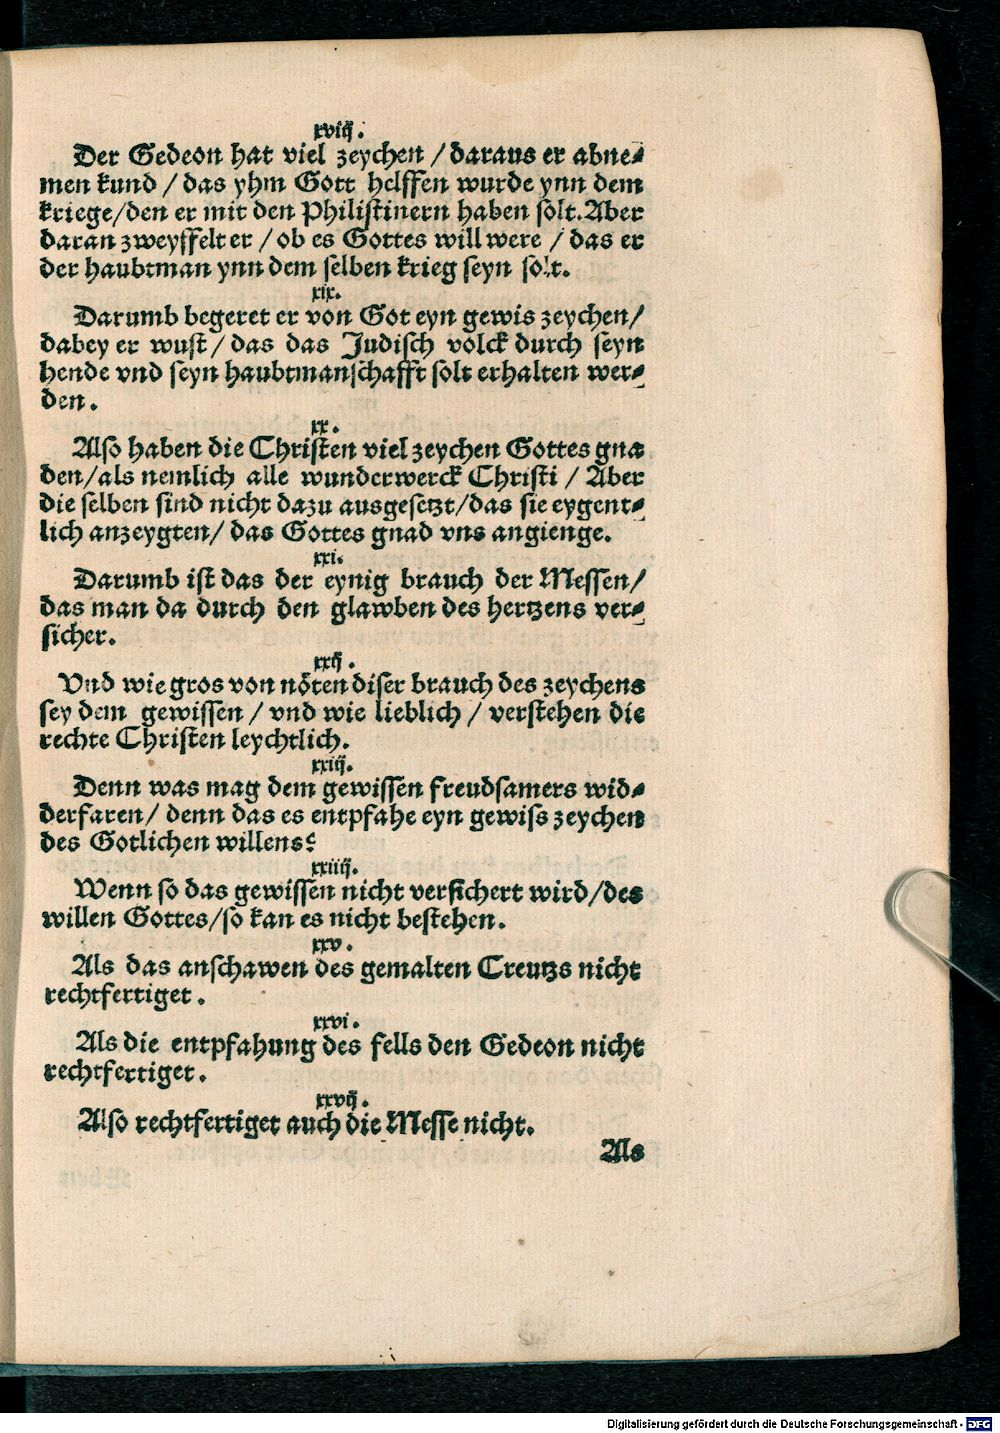 xviij.
Der Gedeon hat viel zeychen / daraus er abne⸗
men kund / das yhm Gott helffen wurde ynn dem
kriege/den er mit den Philistinern haben solt.Aber
daran zweyffelt er / ob es Gottes will were / das er
der haubtman ynn dem selben krieg seyn solt.
xix.
Darumb begeret er von Got eyn gewis zeychen/
dabey er wust / das das Judisch volck durch seyn
hende vnd seyn haubtmanschafft solt erhalten wer⸗
den.
xx.
Also haben die Christen viel zeychen Gottes gna
den/als nemlich alle wunderwerck Christi / Aber
die selben sind nicht dazu ausgesetzt/das sie eygent⸗
lich anzeygten/ das Gottes gnad vns angienge.
xxi.
Darumb ist das der eynig brauch der Messen/
das man da durch den glawben des hertzens ver⸗
sicher.
xxij.
Vnd wie gros von nöten diser brauch des zeychens
sey dem gewissen / vnd wie lieblich / verstehen die
rechte Christen leychtlich.
xxiij.
Denn was mag dem gewissen freudsamers wid⸗
derfaren/ denn das es entpfahe eyn gewiss zeychen
des Gotlichen willens?
xxiiij.
Wenn so das gewissen nicht versichert wird/des
willen Gottes/so kan es nicht bestehen.
xxv.
Als das anschawen des gemalten Creutzs nicht
rechtfertiget.
xxvi.
Als die entpfahung des fells den Gedeon nicht
rechtfertiget.
xxvij.
Also rechtfertiget auch die Messe nicht.
Als
Digitalisierung gefördert durch die Deutsche Forschungsgemeinschaft - DFG